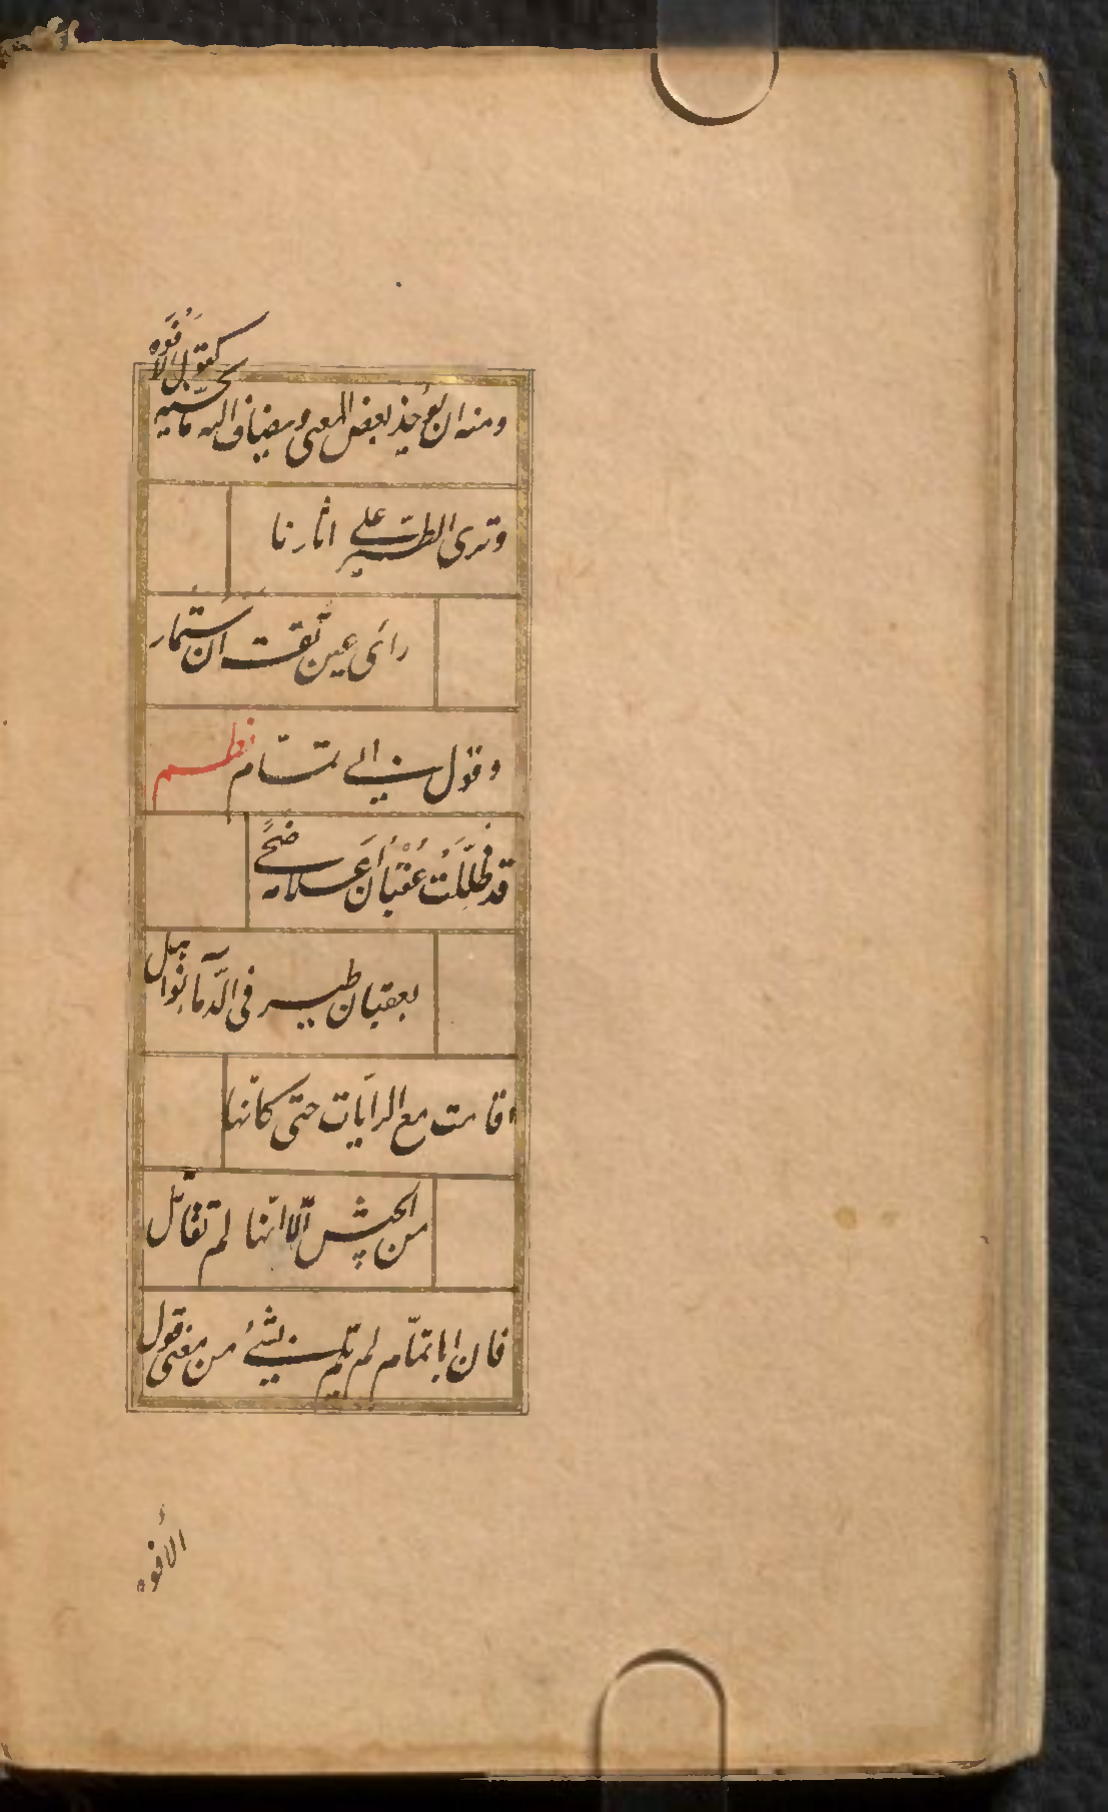 ومنه ان يؤخذ بعض المعنى ويضاف اليه ما يحسنه كقول الأفوه
وترى الطير على اثارنا
رأى عين ثقة ان ستمار
وقول ابي تمام نظم
قد ظُلِّلَت عُقْبَانُ أعلامه ضُحًى
بعقبان طير في الدماء نواهل
اقامت مع الرايات حتى كأنّها
من الجيش الّا انّها لم تقاتل
فان اباتمّام لم يلم بشئ من معنى قول
الأفوه